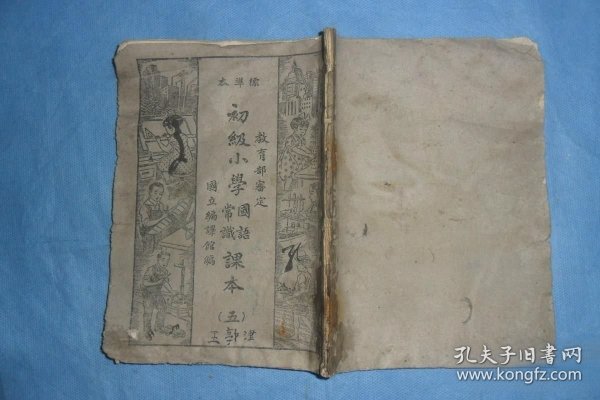 標準本
教育部審定
初級小學國語常識課本
(五)
國立編譯館編
孔夫子旧书网
www.kongfz.com